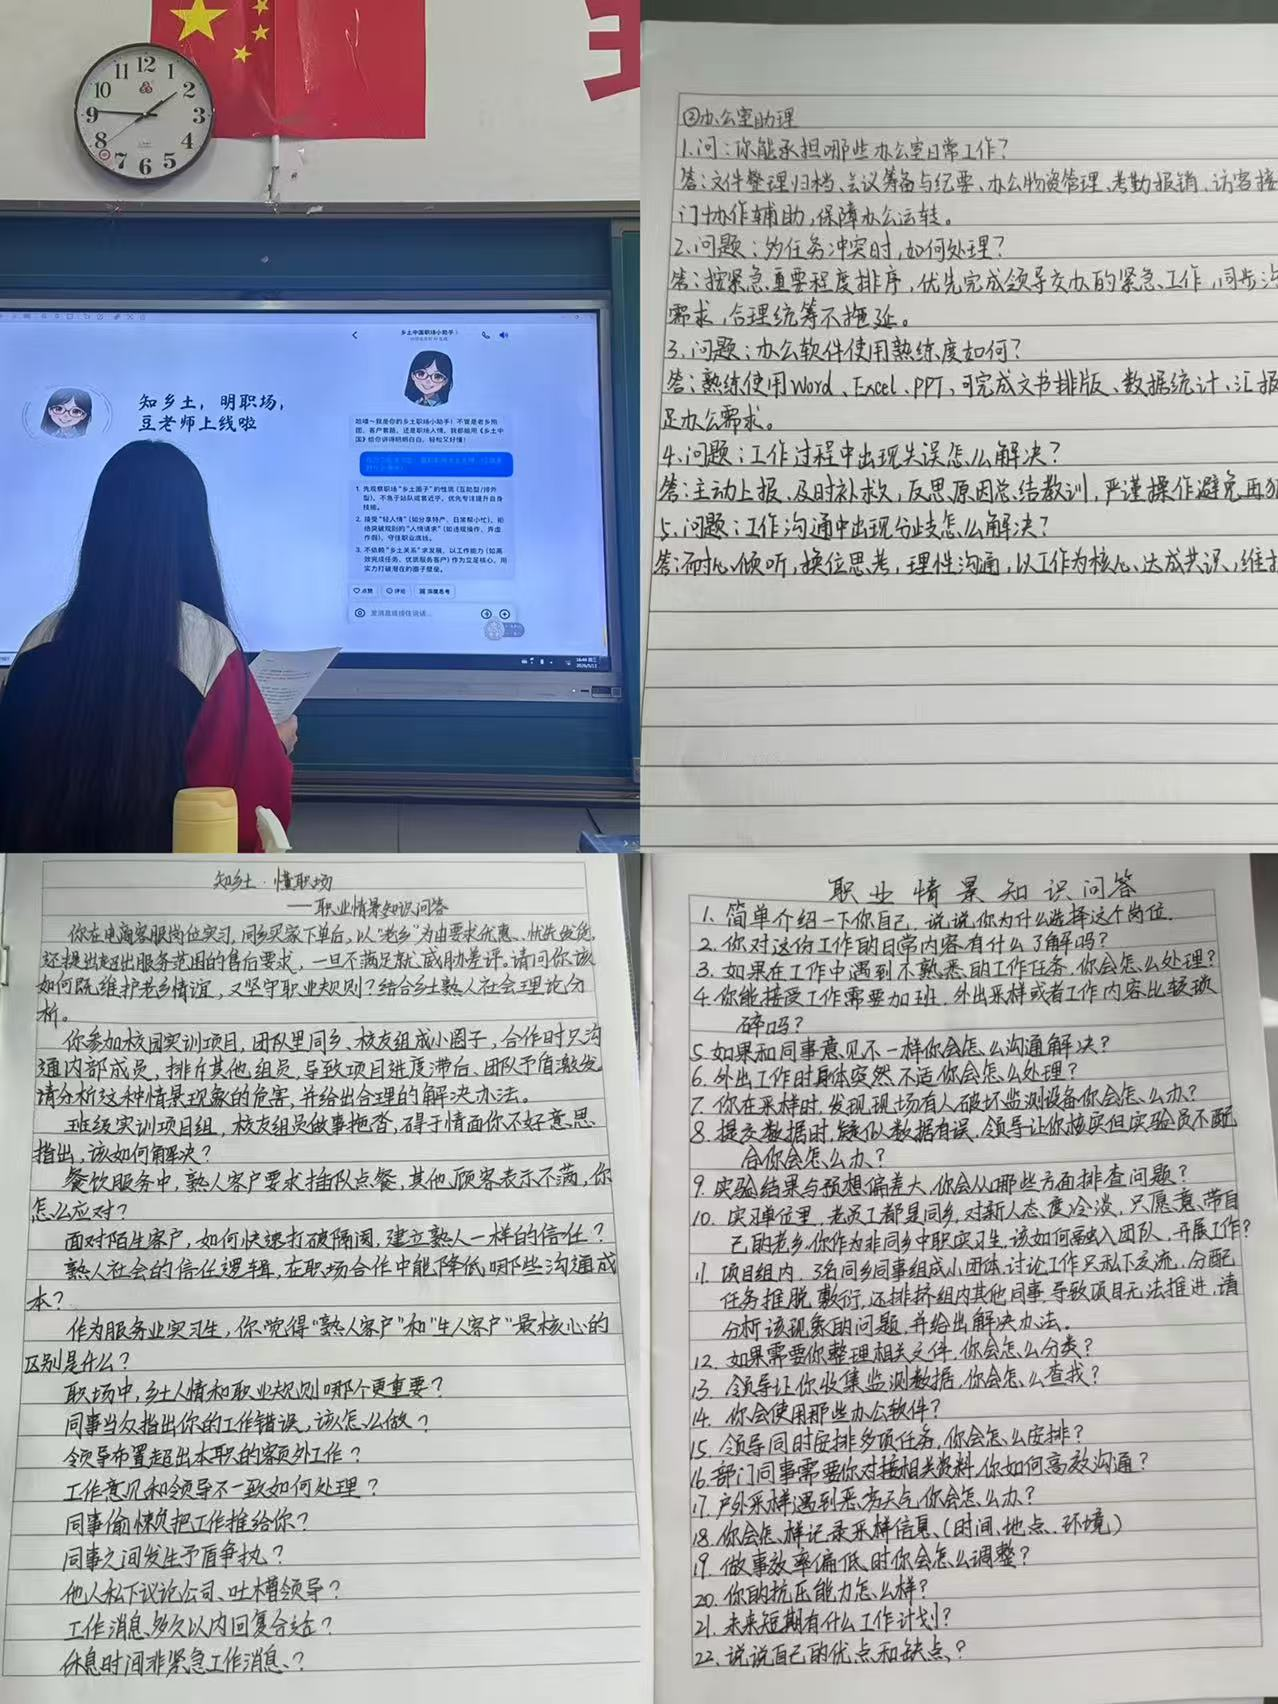 12
1
2
3
4
5
6
7
8
9
10
11
知乡土，明职场，
豆老师上线啦
乡土中国职场小助手
哈喽～我是你的乡土职场小助手！不管是老乡抱
团、客户套路，还是职场人情，我都能用《乡土中
国》给你讲得明明白白，轻松又好懂！
1. 先观察职场“乡土圈子”的性质（互助型/排外
型），不急于站队或套近乎，优先专注提升自身
技能。
2. 接受“轻人情”（如分享特产、日常帮小忙），拒
绝突破规则的“人情请求”（如违规操作、弄虚
作假），守住职业底线。
3. 不依赖“乡土关系”求发展，以工作能力（如高
效完成任务、优质服务客户）作为立足核心，用
实力打破潜在的圈子壁垒。
点赞
评论
深度思考
发消息或按住说话...
②办公室助理
1.问：你能承担哪些办公室日常工作？
答：文件整理归档、会议筹备与纪要、办公物资管理、考勤报销、访客接
门协作辅助，保障办公运转。
2.问题：多任务冲突时，如何处理？
答：按紧急重要程度排序，优先完成领导交办的紧急工作，同步沟
需求，合理统筹不拖延。
3.问题：办公软件使用熟练度如何？
答：熟练使用Word、Excel、PPT，可完成文书排版、数据统计、汇报
足办公需求。
4.问题：工作过程中出现失误怎么解决？
答：主动上报，及时补救，反思原因总结教训，严谨操作避免再犯
5.问题：工作沟通中出现分歧怎么解决？
答：耐心倾听，换位思考，理性沟通，以工作为核心、达成共识，维护
知乡土·懂职场
——职业情景知识问答
你在电商客服岗位实习，同乡买家下单后，以“老乡”为由要求优惠、优先发货，
还提出超出服务范围的售后要求，一旦不满足就威胁差评。请问你该
如何既维护老乡情谊，又坚守职业规则？结合乡土熟人社会理论分
析。
你参加校园实训项目，团队里同乡、校友组成小圈子，合作时只沟
通内部成员，排斥其他组员，导致项目进度滞后、团队矛盾激发
请分析这种情景现象的危害，并给出合理的解决办法。
班级实训项目组，校友组员做事拖沓，碍于情面你不好意思
指出，该如何解决？
餐饮服务中，熟人客户要求插队点餐，其他顾客表示不满，你
怎么应对？
面对陌生客户，如何快速打破隔阂，建立熟人一样的信任？
熟人社会的信任逻辑，在职场合作中能降低哪些沟通成
本？
作为服务业实习生，你觉得“熟人客户”和“生人客户”最核心的
区别是什么？
职场中，乡土人情和职业规则哪个更重要？
同事当众指出你的工作错误，该怎么做？
领导布置超出本职的额外工作？
工作意见和领导不一致如何处理？
同事偷懒负把工作推给你？
同事之间发生矛盾争执？
他人私下议论公司、吐槽领导？
工作消息多久以内回复合适？
休息时间非紧急工作消息？
职业情景知识问答
1. 简单介绍一下你自己，说说你为什么选择这个岗位.
2. 你对这份工作的日常内容有什么了解吗？
3. 如果在工作中遇到不熟悉的工作任务，你会怎么处理？
4. 你能接受工作需要加班，外出采样或者工作内容比较琐
碎吗？
5. 如果和同事意见不一样你会怎么沟通解决？
6. 外出工作时身体突然不适你会怎么处理？
7. 你在采样时，发现现场有人破坏监测设备你会怎么办？
8. 提交数据时，疑似数据有误，领导让你核实但实验员不配
合你会怎么办？
9. 实验结果与预想偏差大，你会从哪些方面排查问题？
10. 实习单位里，老员工都是同乡，对新人态度冷淡，只愿意带自
己的老乡，你作为非同乡中职实习生，该如何融入团队，开展工作？
11. 项目组内，3名同乡同事组成小团体，讨论工作只私下交流，分配
任务推脱敷衍，还排挤组内其他同事，导致项目无法推进，请
分析该现象的问题，并给出解决办法。
12. 如果需要你整理相关文件，你会怎么分类？
13. 领导让你收集监测数据，你会怎么查找？
14. 你会使用那些办公软件？
15. 领导同时安排多项任务，你会怎么安排？
16. 部门同事需要你对接相关资料，你如何高效沟通？
17. 户外采样遇到恶劣天气你会怎么办？
18. 你会怎样记录采样信息（时间、地点、环境）
19. 做事效率偏低时你会怎么调整？
20. 你的抗压能力怎么样？
21. 未来短期有什么工作计划？
22. 说说自己的优点和缺点？